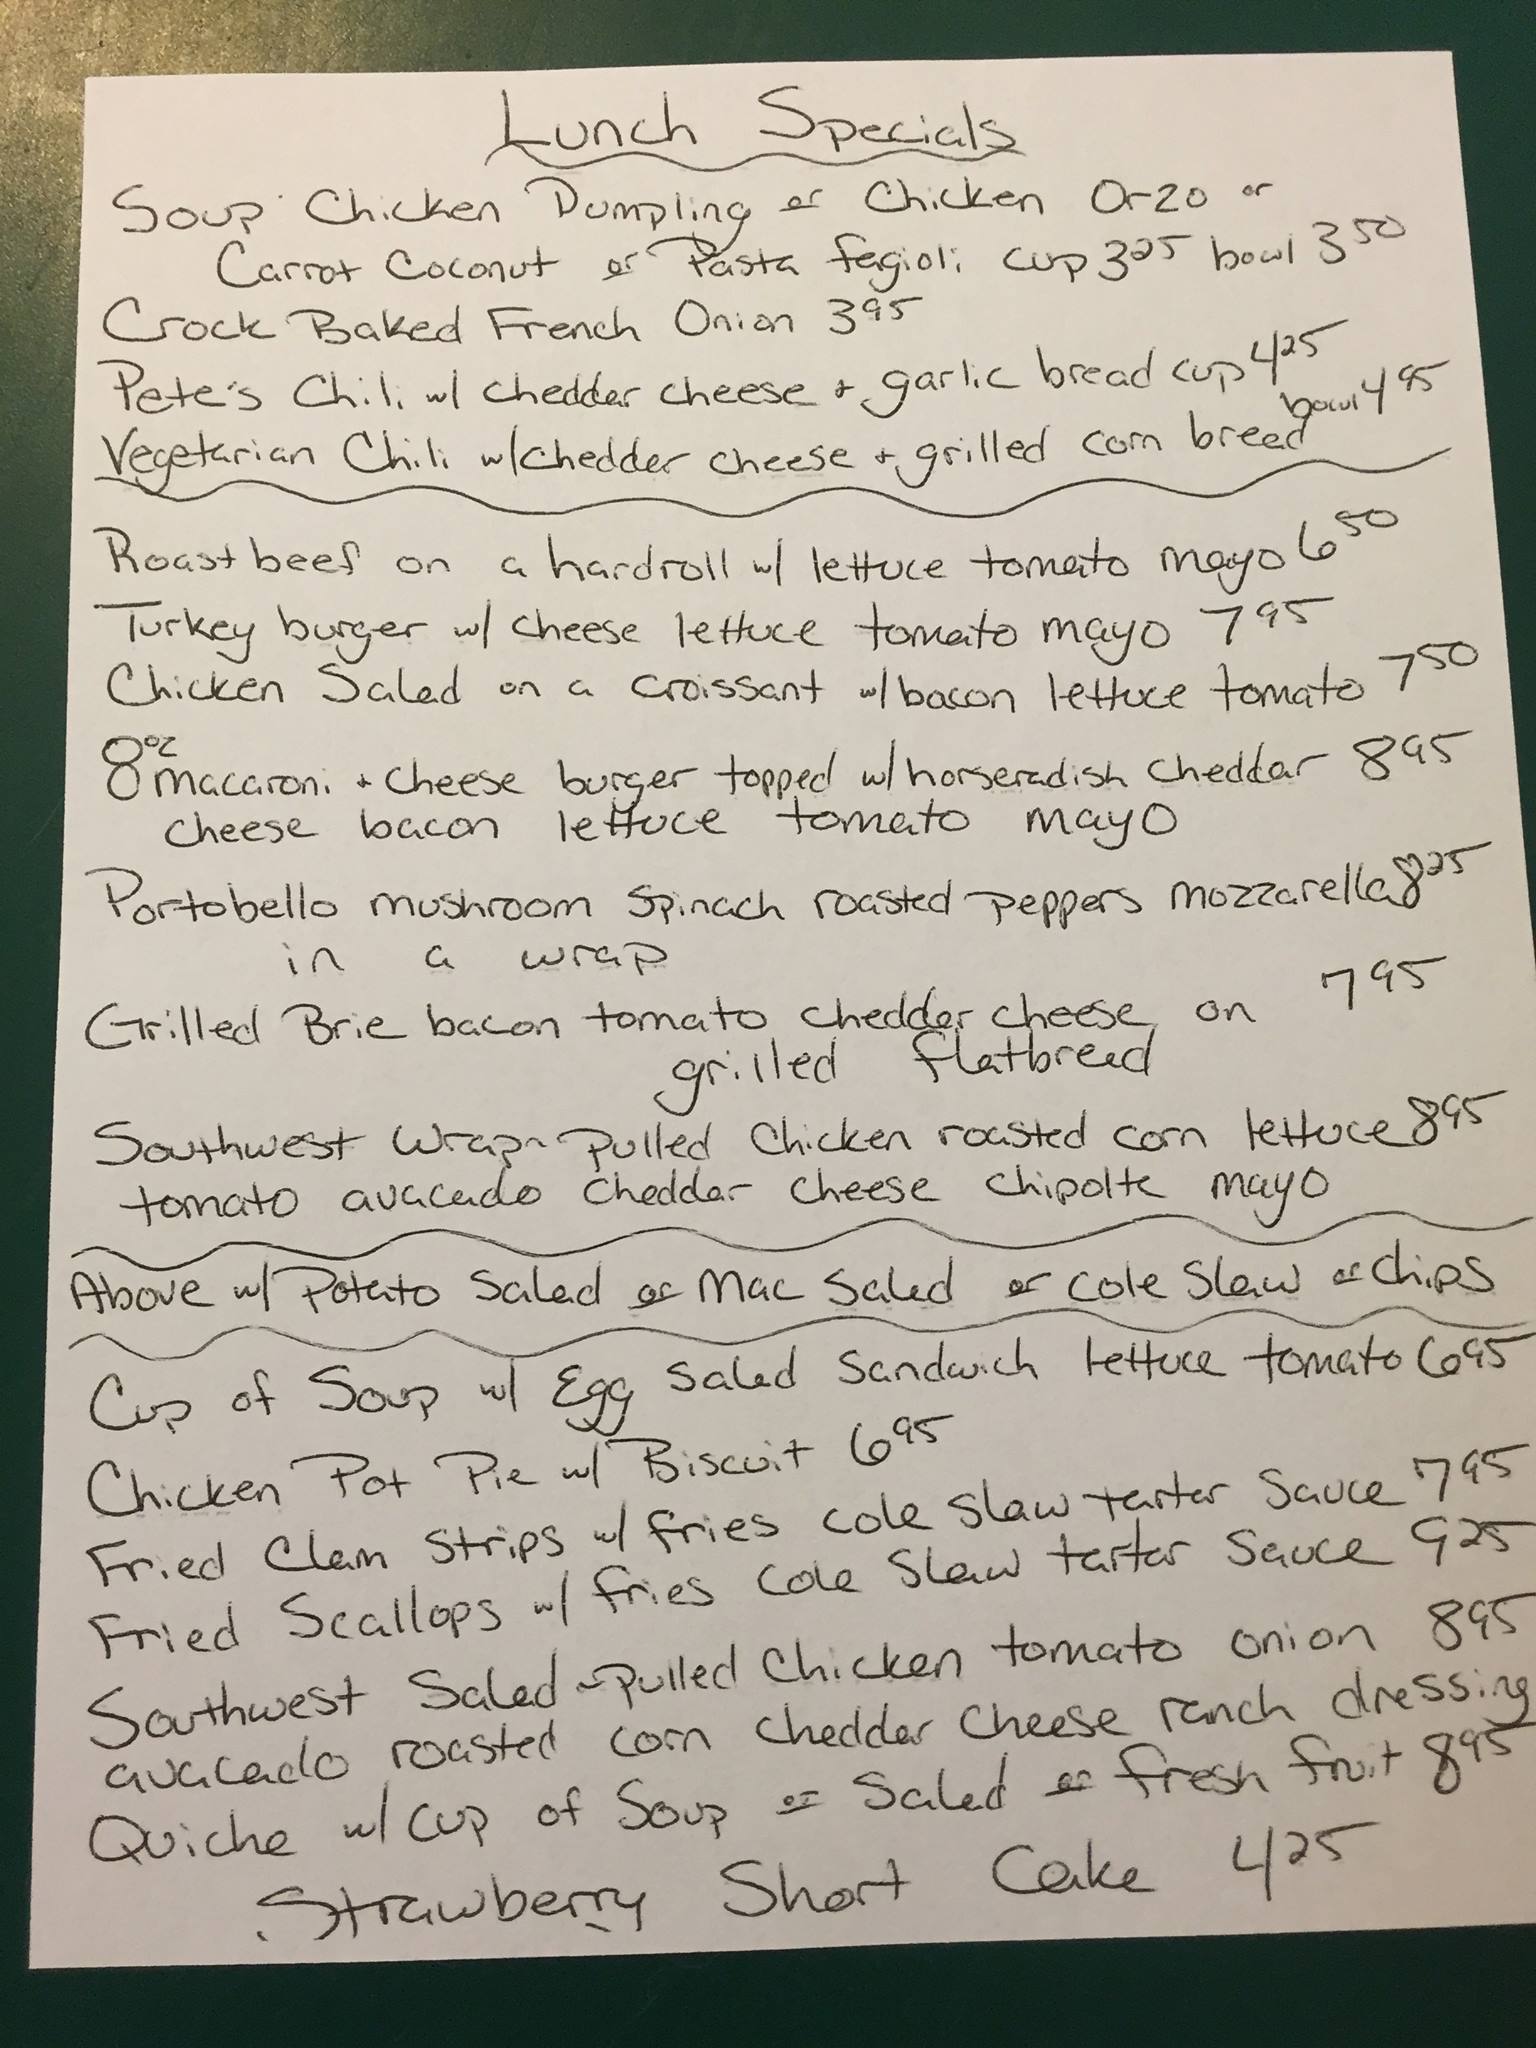 Lunch Specials
Soup Chicken Dumpling or Chicken Orzo or
Carrot Coconut or Pasta fagioli cup 3 25 bowl 3 50
Crock Baked French Onion 3 95
Pete's Chili w/ chedder cheese + garlic bread cup 4 25
bowl 4 95
Vegetarian Chili w/ chedder cheese + grilled corn bread
Roast beef on a hardroll w/ lettuce tomato mayo 6 50
Turkey burger w/ cheese lettuce tomato mayo 7 95
Chicken Salad on a croissant w/ bacon lettuce tomato 7 50
8 oz macaroni + cheese burger topped w/ horseradish cheddar 8 95
cheese bacon lettuce tomato mayo
Portobello mushroom spinach roasted peppers mozzarella 8 25
in a wrap
Grilled Brie bacon tomato chedder cheese on 7 95
grilled flatbread
Southwest Wrap ~ pulled chicken roasted corn lettuce 8 95
tomato avacado cheddar cheese chipolte mayo
Above w/ Potato Salad or Mac Salad or Cole Slaw or Chips
Cup of Soup w/ Egg Salad Sandwich lettuce tomato 6 95
Chicken Pot Pie w/ Biscuit 6 95
Fried Clam Strips w/ fries cole slaw tarter sauce 7 95
Fried Scallops w/ fries cole slaw tarter sauce 9 25
Southwest Salad ~ pulled chicken tomato onion 8 95
avacado roasted corn chedder cheese ranch dressing
Quiche w/ cup of Soup or Salad or fresh fruit 8 95
Strawberry Short Cake 4 25